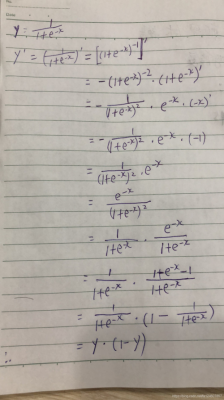 y = 1/(1+e^-x)
y' = (1/(1+e^-x))' = [(1+e^-x)^-1]'
= -(1+e^-x)^-2 · (1+e^-x)'
= - 1/(1+e^-x)^2 · e^-x · (-x)'
= - 1/(1+e^-x)^2 · e^-x · (-1)
= 1/(1+e^-x)^2 · e^-x
= e^-x/(1+e^-x)^2
= 1/(1+e^-x) · e^-x/(1+e^-x)
= 1/(1+e^-x) · (1+e^-x-1)/(1+e^-x)
= 1/(1+e^-x) · (1 - 1/(1+e^-x))
= y · (1-y)